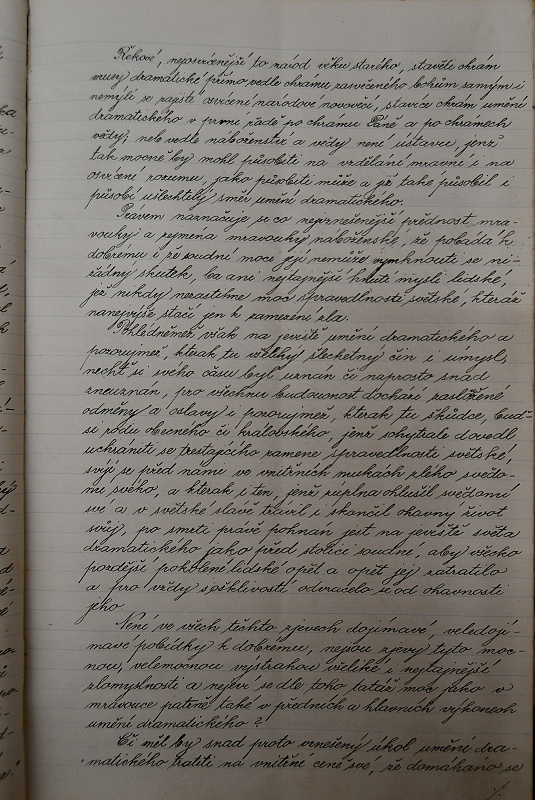 Řekové, nejosvícenější to národ věku starého, stavěli chrám
musy dramatické přímo vedle chrámu zasvěceného bohům samým i
nemýlí se zajisté osvícení národové novověcí, stavíce chrám umění
dramatického v první řadě po chrámu Páně a po chrámech
vědy; neb vedle náboženství a vědy není ústavu, jenž
tak mocně by mohl působiti na vzdělání mravní i na
osvícení rozumu, jako působiti může a již také působil i
působí ušlechtilý směr umění dramatického.
Právem naznačuje se co nejvznešenější přednost mra-
vouky a zejména mravouky náboženské, že pobádá k
dobrému i že soudní moci její nemůže vymknouti se ni-
žádný skutek, ba ani nejtajnější hnutí mysli lidské,
jež nikdy nezastihne moc spravedlnosti světské, kteráž
nanejvýše stačí jen k zamezení zla.
Pohlédněmež však na jeviště umění dramatického a
pozorujmež, kterak tu všeliký šlechetný čin i úmysl,
nechť si svého času byl uznán či naprosto snad
zneuznán, pro všechnu budoucnost dochází zasloužené
odměny a oslavy i pozorujmež, kterak tu škůdce, buď-
si rodu obecného či královského, jenž schytrale dovedl
uchrániti se trestajícího ramene spravedlnosti světské,
svíjí se před námi ve vnitřních mukách zlého svědo-
mí svého, a kterak i ten, jenž zúplna ohlušil svědomí
své a v světské slávě trávil i skončil ohavný život
svůj, po smrti právě pohnán jest na jeviště světa
dramatického jako před stolici soudné, aby všecko
pozdější pokolení lidské opět a opět jej zatratilo
a pro vždy s ošklivostí odvracelo se od ohavnosti
jeho.
Není ve všech těchto zjevech dojímavé, veledojí-
mavé pobídky k dobrému, nejsou zjevy tyto moc-
nou, velemocnou výstrahou všeliké i nejtajnější
zlomyslnosti a nejeví se dle toho tatáž moc jako v
mravouce patrně také v předních a hlavních výkonech
umění dramatického?
Či měl by snad proto vznešený úkol umění dra-
matického tratiti na vnitřní ceně své, že domáháno se